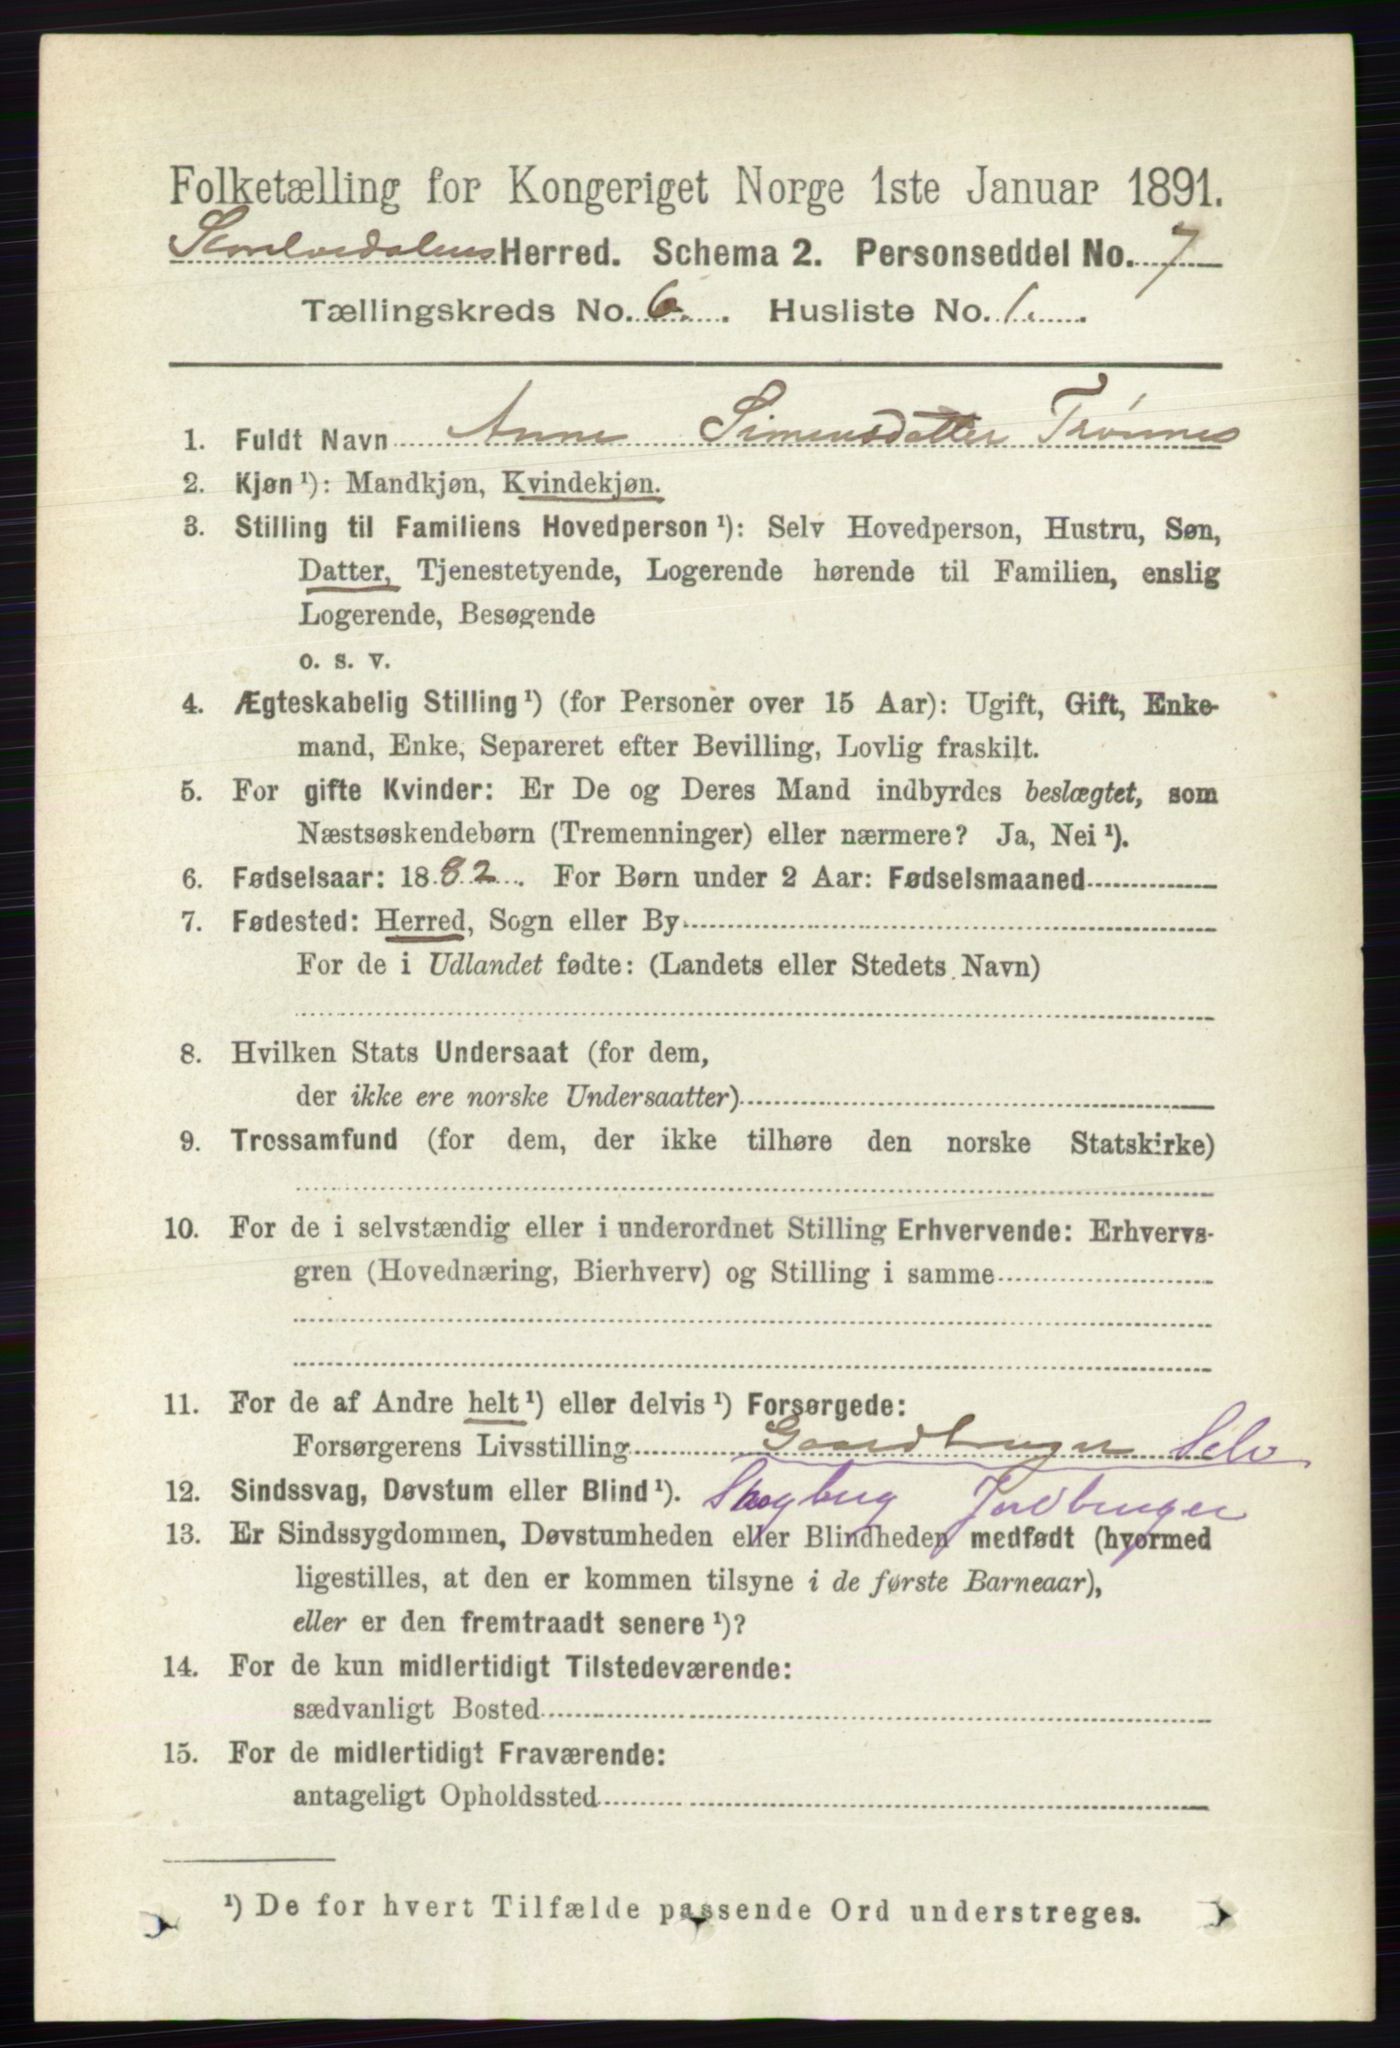 Folketælling for Kongeriget Norge 1ste Januar 1891.
Herred. Schema 2. Personseddel No. 7
Tællingskreds No. 6. Husliste No. 1.
1. Fuldt Navn Anne Simensdatter Trønnes
2. Kjøn ¹): Mandkjøn, Kvindekjøn.
3. Stilling til Familiens Hovedperson ¹): Selv Hovedperson, Hustru, Søn,
Datter, Tjenestetyende, Logerende hørende til Familien, enslig
Logerende, Besøgende
o. s. v.
4. Ægteskabelig Stilling ¹) (for Personer over 15 Aar): Ugift, Gift, Enke-
mand, Enke, Separeret efter Bevilling, Lovlig fraskilt.
5. For gifte Kvinder: Er De og Deres Mand indbyrdes beslægtet, som
Næstsøskendebørn (Tremenninger) eller nærmere? Ja, Nei ¹).
6. Fødselsaar: 1882. For Børn under 2 Aar: Fødselsmaaned
7. Fødested: Herred, Sogn eller By
For de i Udlandet fødte: (Landets eller Stedets Navn)
8. Hvilken Stats Undersaat (for dem,
der ikke ere norske Undersaatter)
9. Trossamfund (for dem, der ikke tilhøre den norske Statskirke)
10. For de i selvstændig eller i underordnet Stilling Erhvervende: Erhvervs-
gren (Hovednæring, Bierhverv) og Stilling i samme
11. For de af Andre helt ¹) eller delvis ¹) Forsørgede:
Forsørgerens Livsstilling Gaardbruger Selv
12. Sindssvag, Døvstum eller Blind ¹). Skogbrug Jordbruger
13. Er Sindssygdommen, Døvstumheden eller Blindheden medfødt (hvormed
ligestilles, at den er kommen tilsyne i de første Barneaar),
eller er den fremtraadt senere ¹)?
14. For de kun midlertidigt Tilstedeværende:
sædvanligt Bosted
15. For de midlertidigt Fraværende:
antageligt Opholdssted
¹) De for hvert Tilfælde passende Ord understreges.